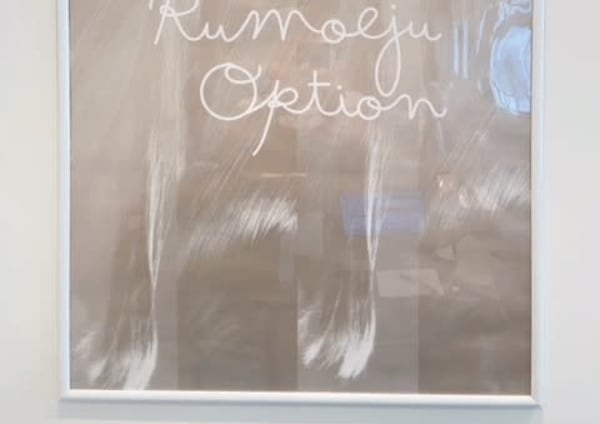 Rumoeju
Option